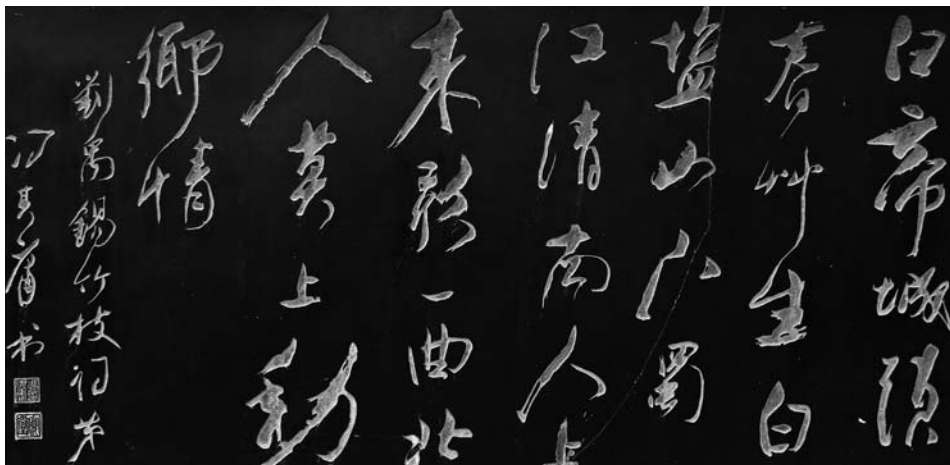 白帝城頭
春艸生白
塩山下蜀
江清南人上
来歌一曲北
人莫上動
鄉情
劉禹錫竹枝词
冯其庸书